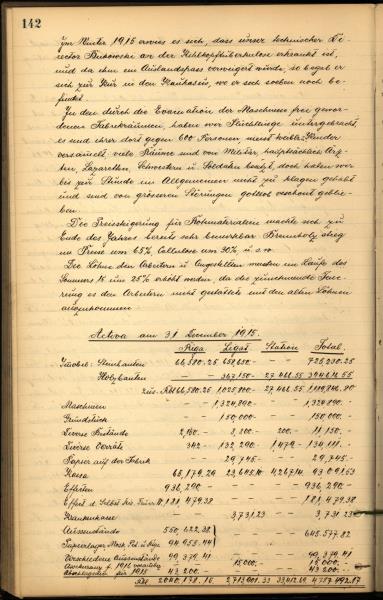 142
Im Winter 1915 erwies es sich, dass unser technischer Di-
rector Bukowski an der Kehlkopftuberkulose erkrankt ist,
und da ihm ein Auslandspass verweigert wurde, so begab er
sich zur Kur in den Kaukasus, wo er sich soeben noch be-
findet.
In den durch die Evacuation der Maschinen frei gewor-
denen Fabrikräumen, haben wir Flüchtlinge untergebracht,
es sind ihrer dort gegen 600 Personen meist Kinder
versammelt; viele Räume sind von Militär, hauptsächlich
Lazaretten, Schwestern u. Soldaten besetzt, doch haben wir
bis zur Stunde im Allgemeinen nicht zu klagen gehabt
und sind von grösseren Störungen gottlob verschont geblie-
ben.
Die Preissteigerung für Rohmaterialien machte sich zu
Ende des Jahres bereits sehr bemerkbar Brennholz stieg
im Preise um 65%, Cellulose um 30% u.s.w.
Die Löhne den Arbeitern u. Angestellten wurden im Laufe des
Sommers um 25% erhöht werden, da die zunehmende Teue-
rung es den Arbeitern nicht gestattete mit den alten Löhnen
auszukommen.
Activa am 31 December 1915.
Riga Ligat Station Total.
Immobil: Steinbauten 66,580.25 658,650.- - - 725,230.25
Holzbauten 367,150.- 27,466.55
zus. Rbl 66,580.25 1,025,800.- 27,466.55
Maschinen - - 1,324,890.- - - 1,324,890.-
Grundstück - - 150,000.- - - 150,000.-
Diverse Bestände 3,800.- 200.-
Diverse Vorräte 342.- 132,290.- 1,479.- 134,111.-
Papier auf der Fabrik - - 29,745.- - - 29,745.-
Kassa
Effecten 936,290.- - - - - 936,290.-
181,479.38 - - - - 181,479.38
Krankenkasse - - 3,731.23 - - 3,731.23
Aussenstände 550,622.38
Papierlager 94,955.44 645,577.82
Verschiedene Aussenstände 90,379.41 - - - - 90,379.41
15,000.- 15,000.-
1915 43,200.- 43,200.-
Rbl